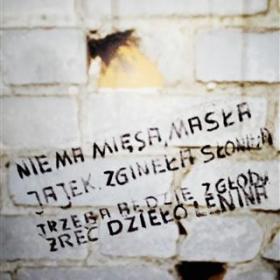 NIE MA MIĘSA, MASŁA
JAJEK. ZGINEŁA SŁONINA
TRZEBA BĘDZIE Z GŁODU
ŻREĆ DZIEŁO LENINA